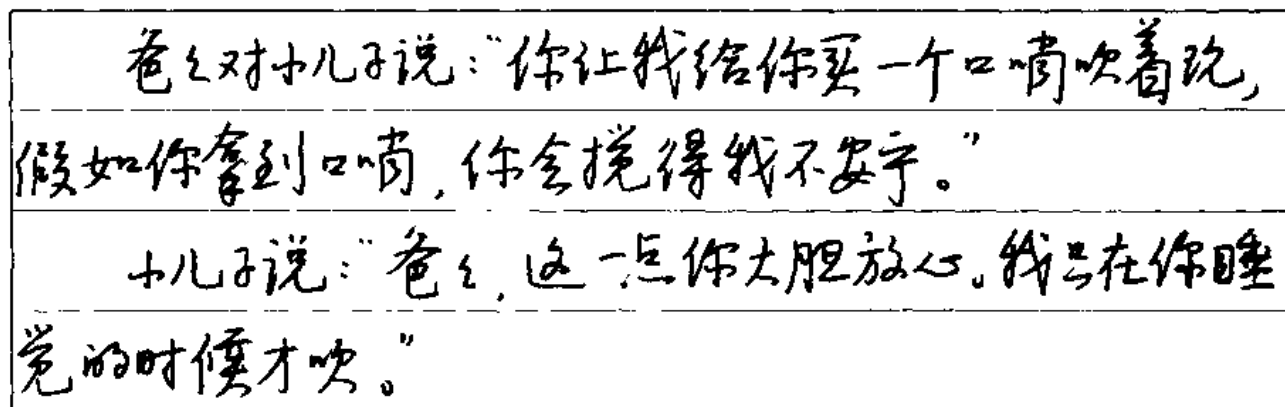 爸爸对小儿子说：“你让我给你买一个口哨吹着玩，
假如你拿到口哨，你会搅得我不安宁。”
小儿子说：“爸爸，这一点你大胆放心。我只在你睡
觉的时候才吹。”